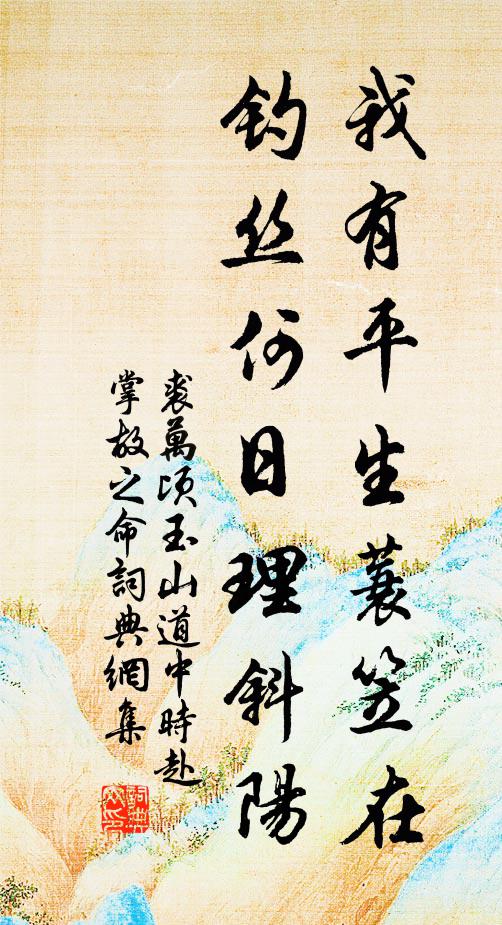 我有平生蓑笠在
钓丝何日理斜陽
裘萬頃玉山道中時赴
掌故之命詞典網集